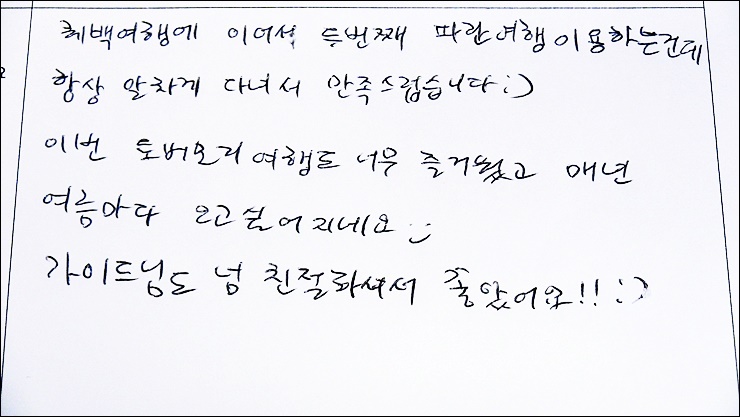 퀘백여행에 이어서 두번째 파란여행 이용하는건데
항상 알차게 다녀서 만족스럽습니다 :)
이번 토버모리 여행도 너무 즐거웠고 매년
여름마다 오고 싶어지네요
가이드님도 넘 친절하셔서 좋았어요!! :)